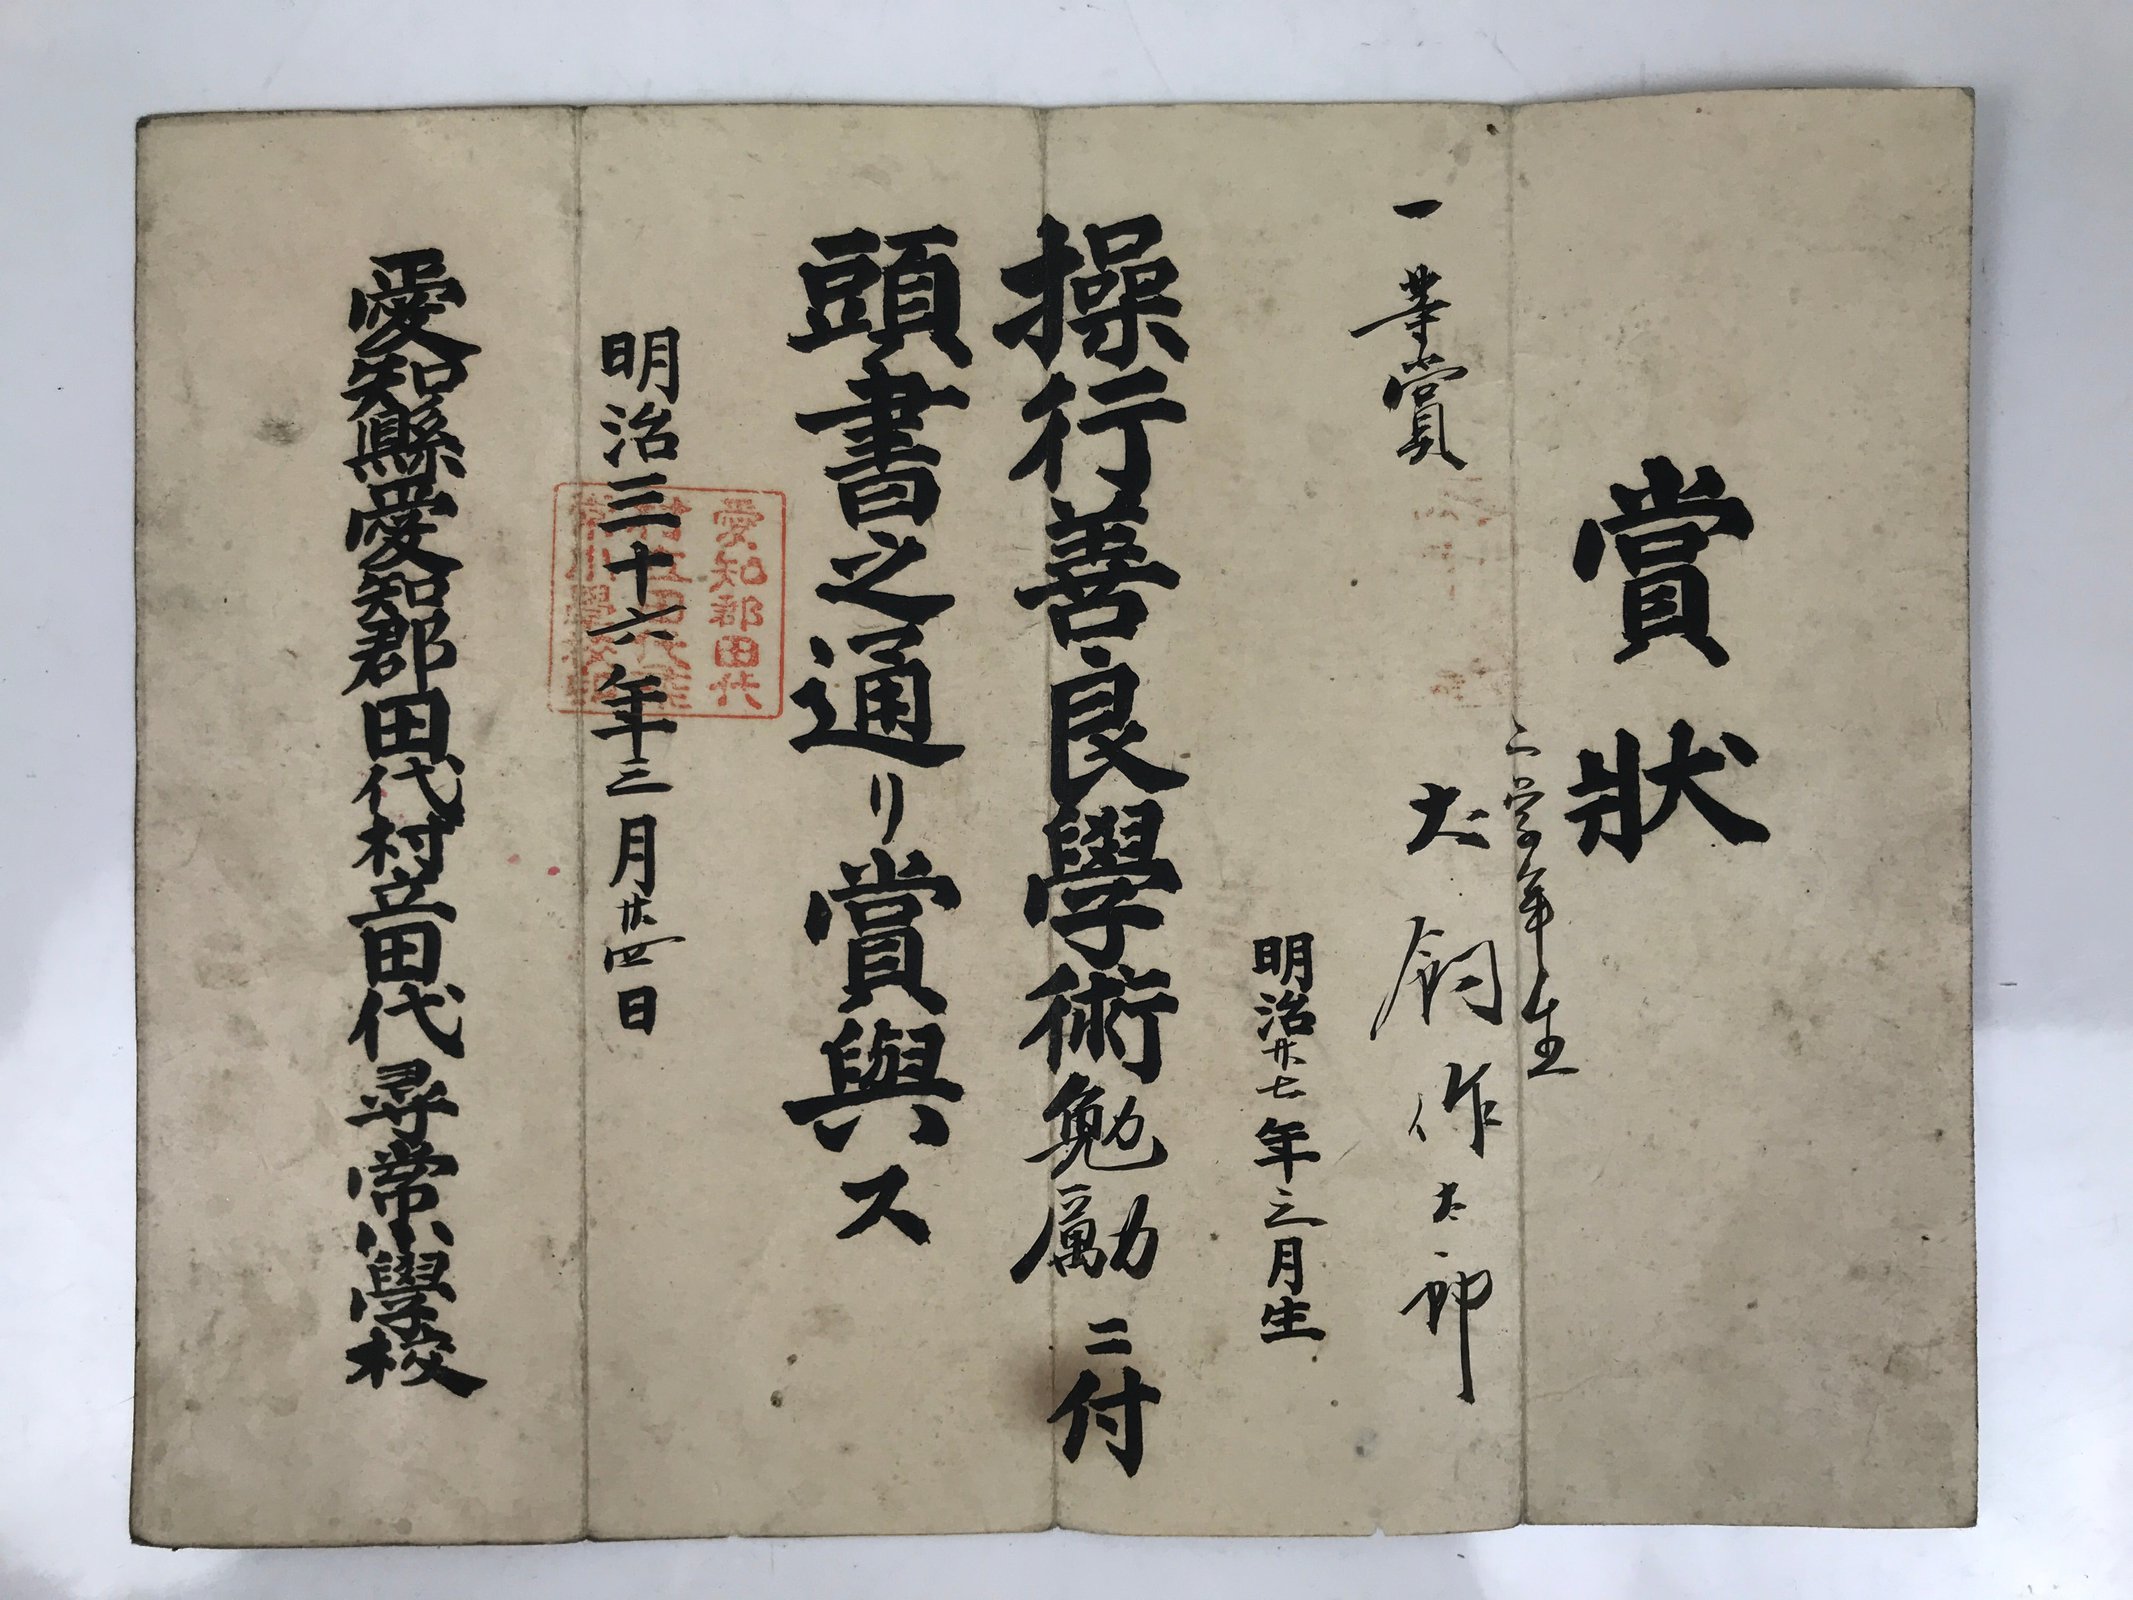 賞狀
一等賞
二学年生
大鈎作太郎
明治廿七年三月生
操行善良學術勉勵ニ付
頭書之通リ賞與ス
明治三十六年三月廿四日
愛知郡田代
村立田代尋
常小學校印
愛知縣愛知郡田代村立田代尋常小學校